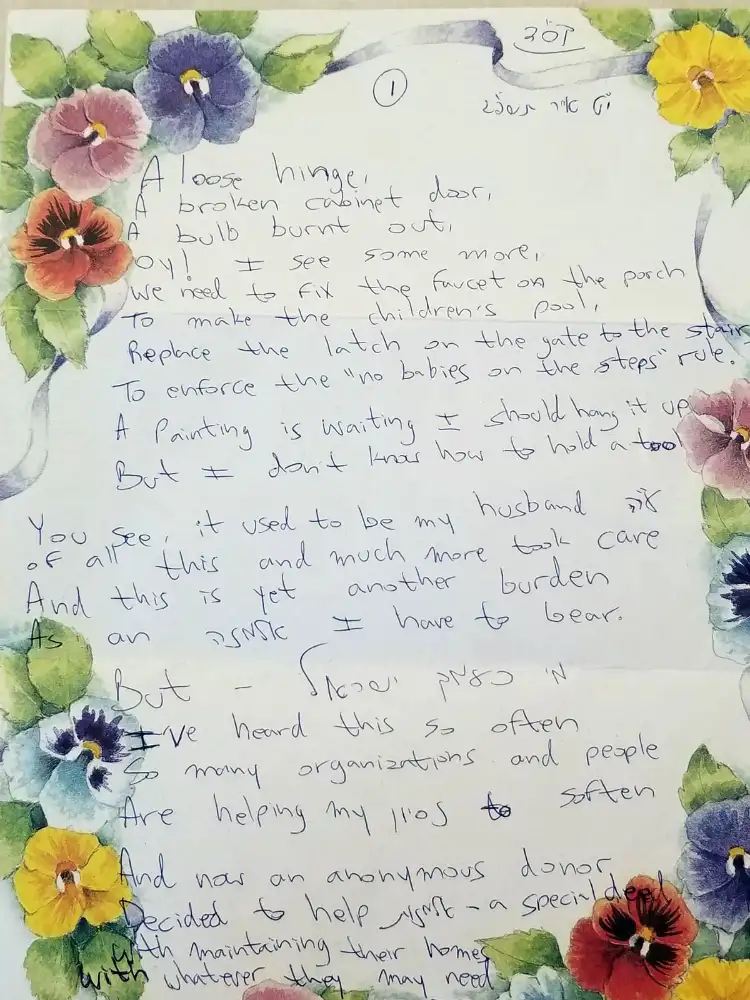 בס"ד
1
A loose hinge,
A broken cabinet door,
A bulb burnt out,
Oy! I see some more,
We need to fix the faucet on the porch
To make the children's pool,
Replace the latch on the gate to the stair
To enforce the "no babies on the steps" rule.
A Painting is waiting I should hang it up
But I don't know how to hold a tool
You see, it used to be my husband ע"ה
of all this and much more took care
And this is yet another burden
As an אלמנה I have to bear.
But - מי כעמך ישראל
I've heard this so often
So many organizations and people
Are helping my נסיון to soften
And now an anonymous donor
Decided to help אלמנות - a special deed
With maintaining their homes
With whatever they may need